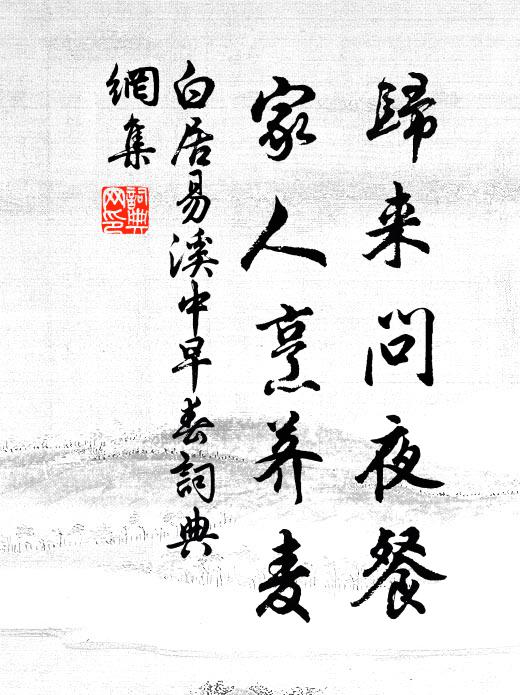 歸来問夜餐
家人烹荠麦
白居易溪中早春詞典
網集
詞典
网印